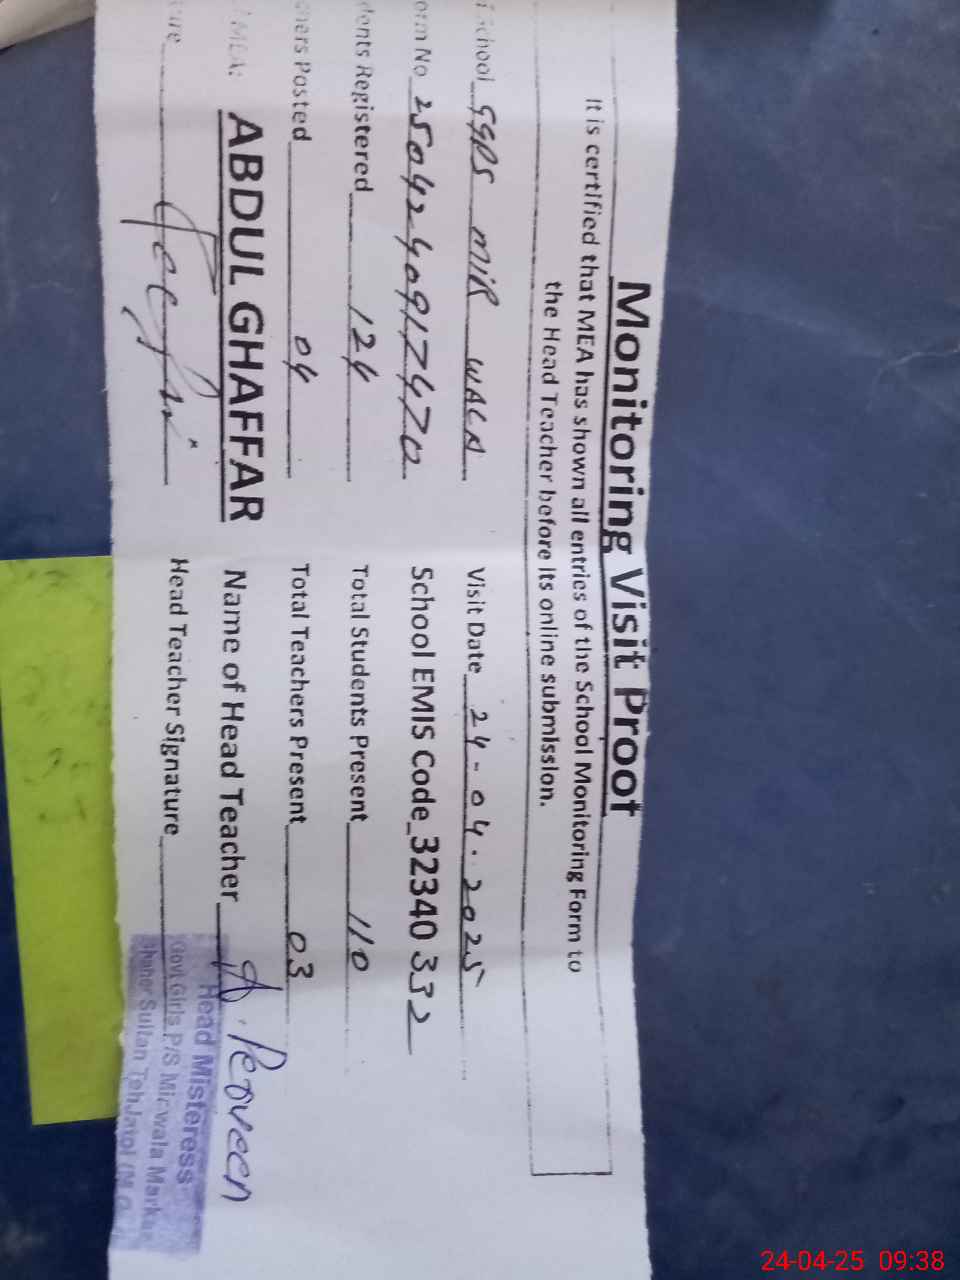 Monitoring Visit Proof
It is certified that MEA has shown all entries of the School Monitoring Form to
the Head Teacher before its online submission.
School GGPS MIR WALA Visit Date 24-04-2025
orm No 25042409174720 School EMIS Code 32340 332
dents Registered 124 Total Students Present 110
hers Posted 04 Total Teachers Present 03
MEA: ABDUL GHAFFAR Name of Head Teacher A. Perveen
ure Head Teacher Signature
Head Misteress
Govt Girls P/S Mirwala Markaz
Shaher Sultan Teh Jatoi (M.G
24-04-25 09:38